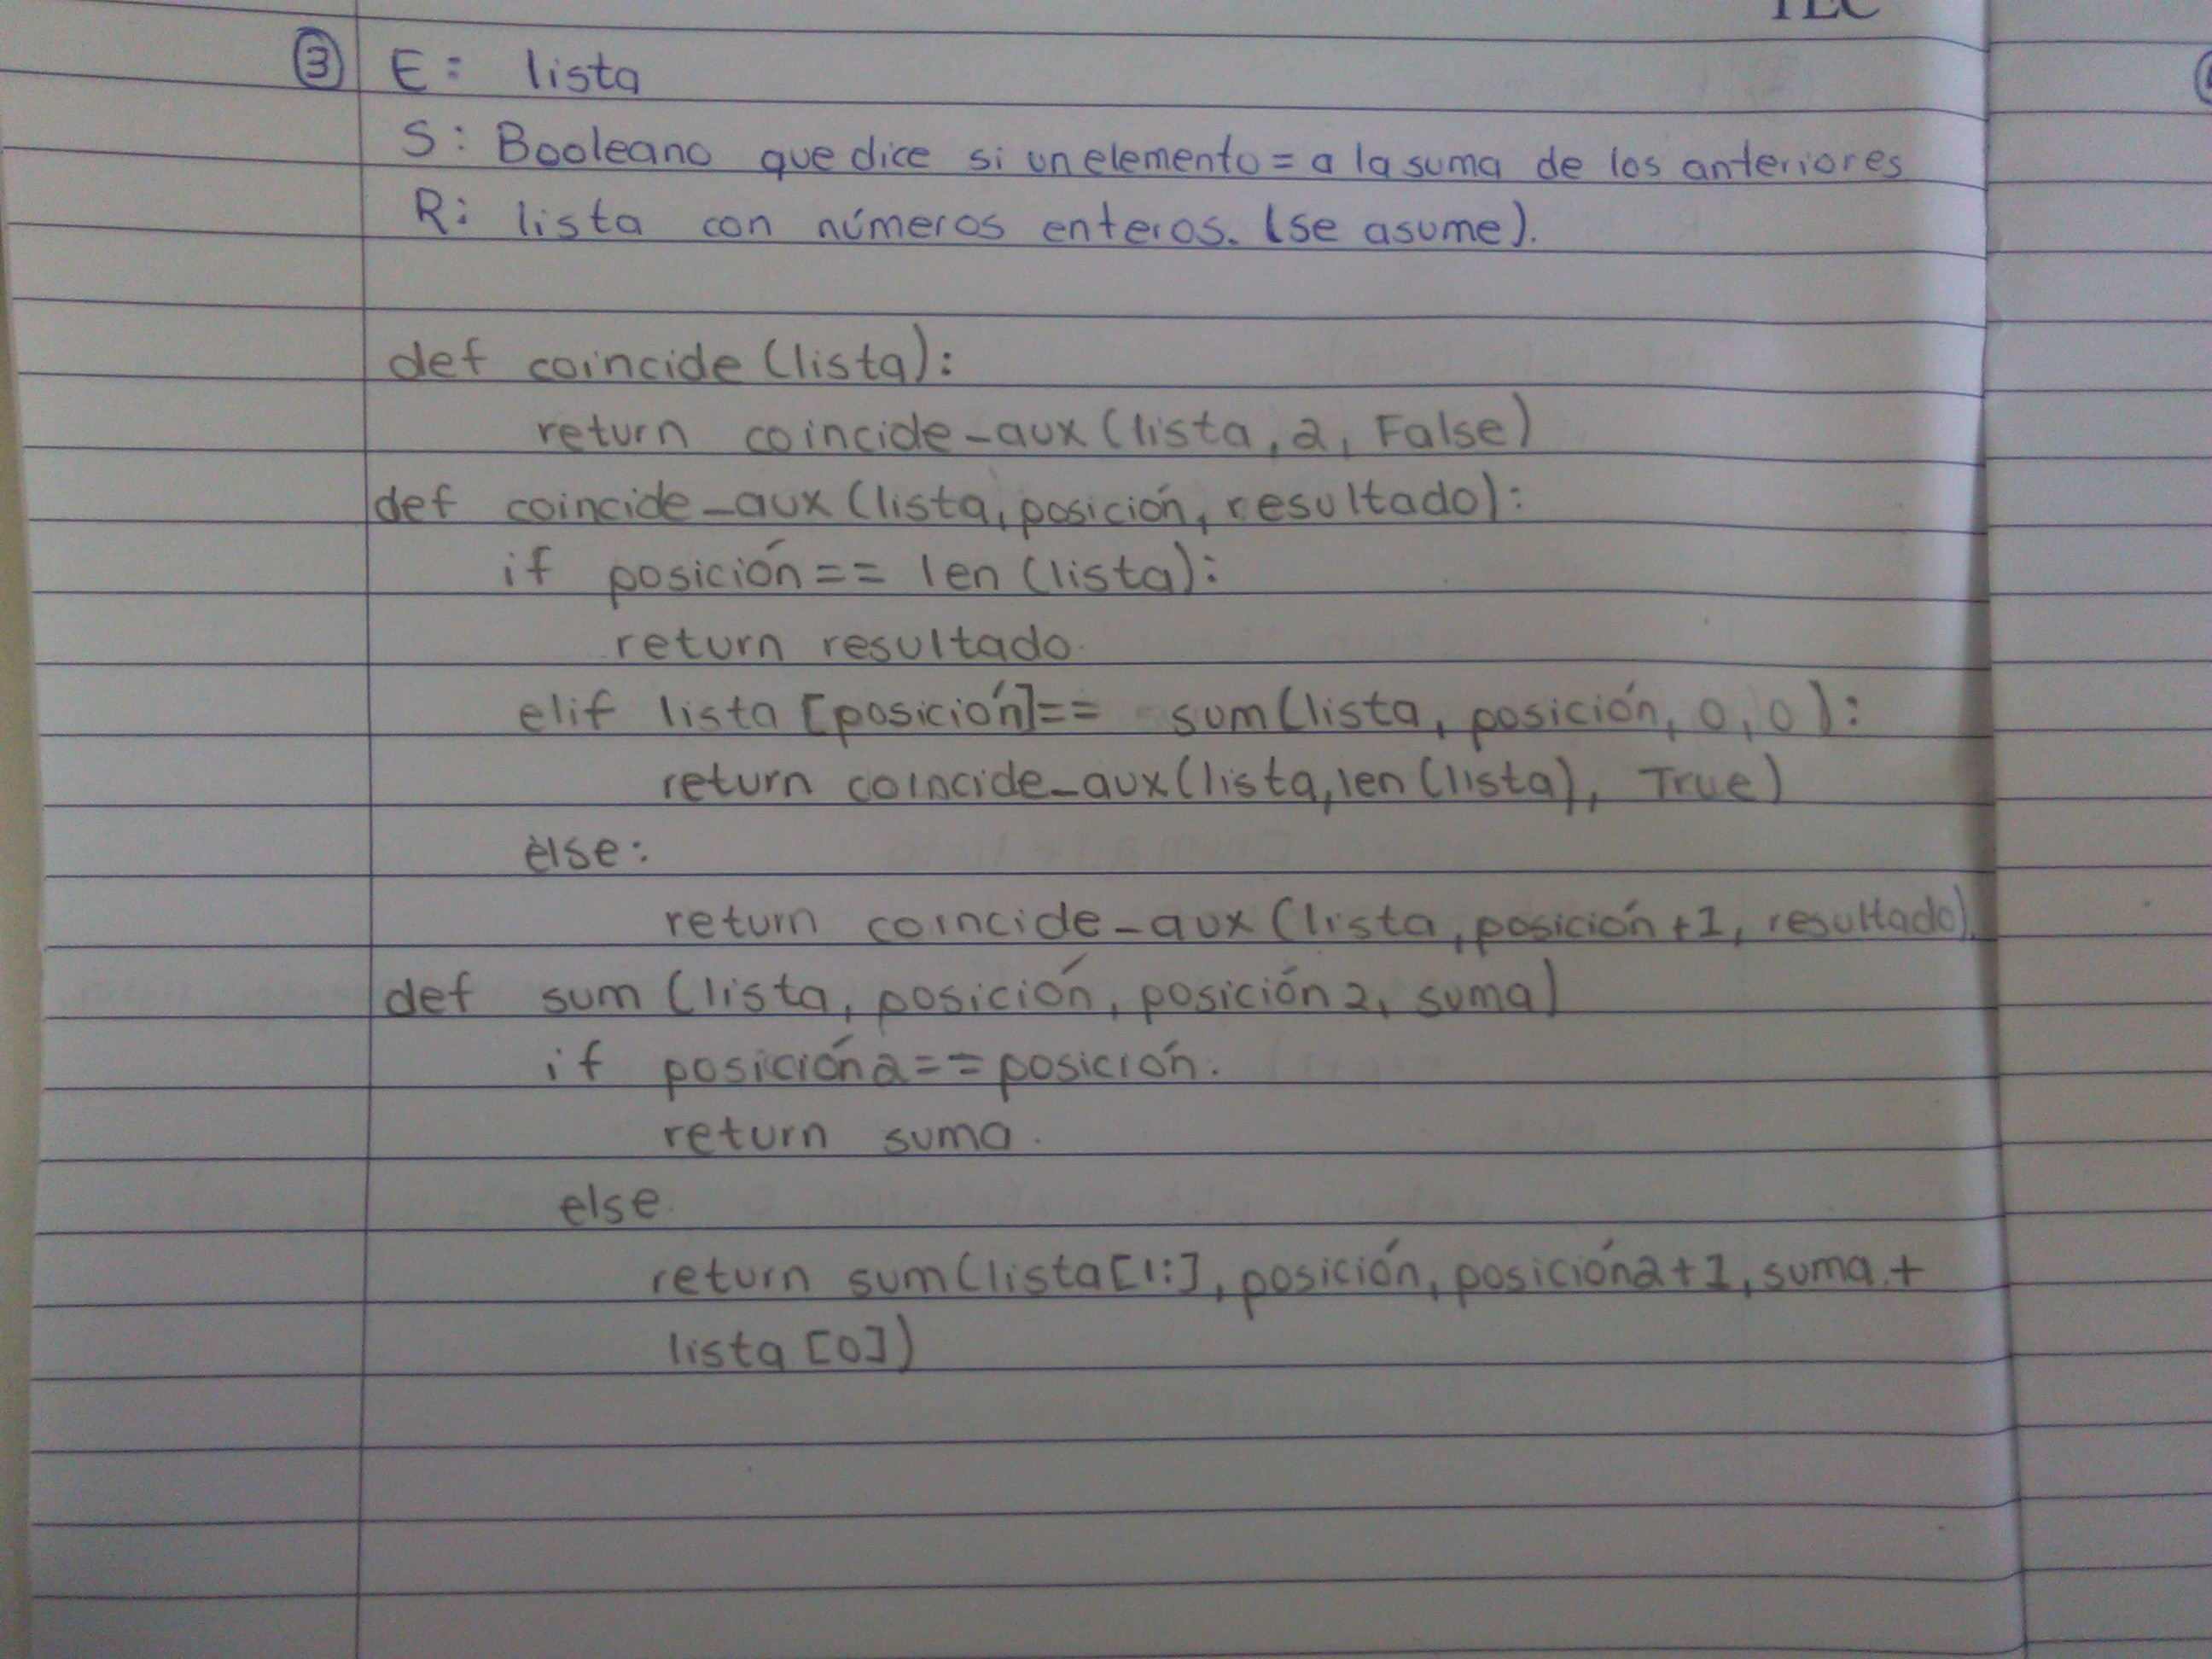 TEC
③ E: lista
S: Booleano que dice si un elemento = a la suma de los anteriores
R: lista con números enteros. (se asume).
def coincide (lista):
return coincide_aux (lista, 2, False)
def coincide_aux (lista, posición, resultado):
if posición == len (lista):
return resultado.
elif lista [posición] == sum (lista, posición, 0, 0):
return coincide_aux (lista, len (lista), True)
else:
return coincide_aux (lista, posición +1, resultado).
def sum (lista, posición, posición 2, suma)
if posición2 == posición.
return suma.
else
return sum (lista [1:], posición, posición2+1, suma +
lista [0])